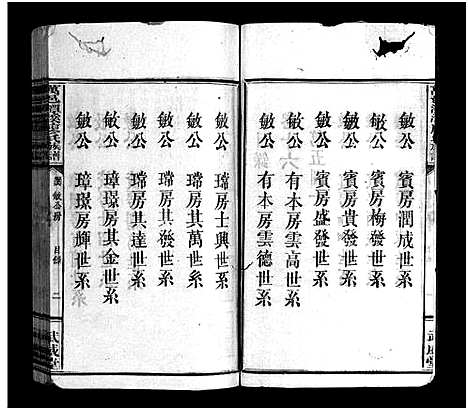 敏公 賓房潤成世系
敏公 賓房梅發世系
敏公 賓房貴發世系
敏公 賓房盛發世系
敏公 有木房雲高世系
敏公 有木房雲德世系
敏公 璫房士興世系
敏公 璫房其萬世系
敏公 璫房其發世系
敏公 璫房其達世系
敏公 璋璟房其金世系
敏公 璋璟房輝世系
敏公房 目錄 二
武成堂